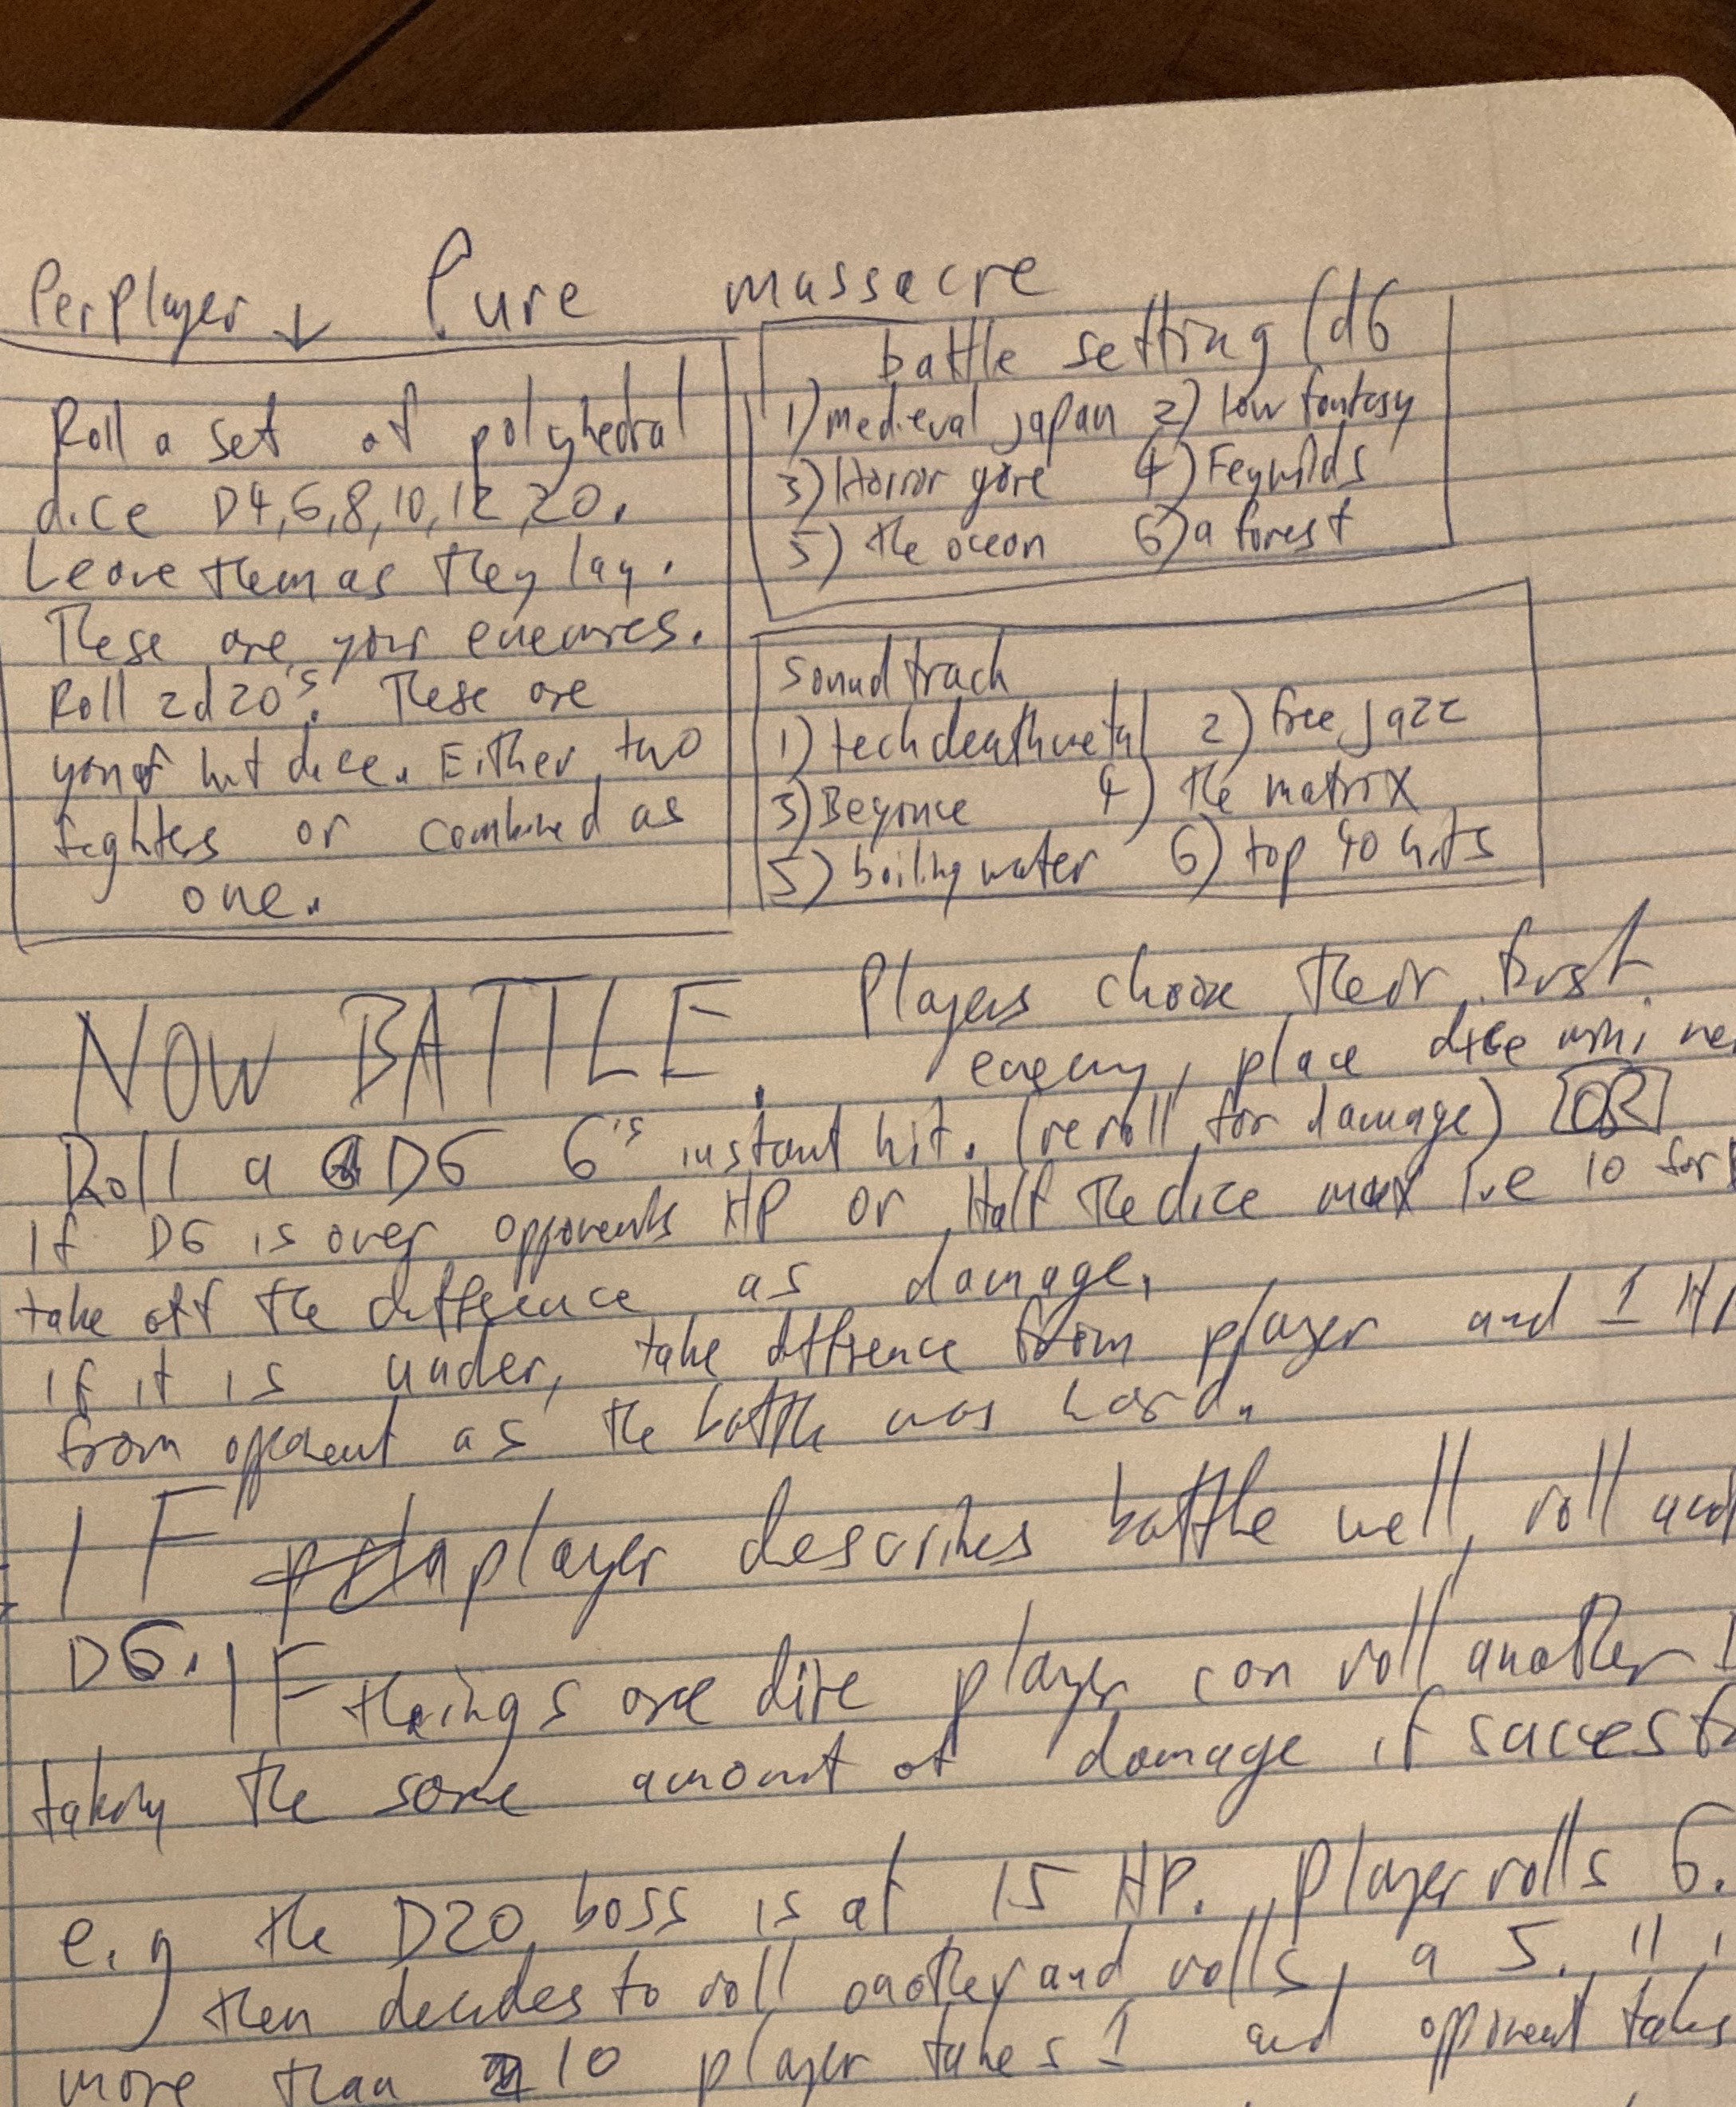 Per Player ↓ Pure massacre
Roll a set of polyhedral
dice D4,6,8,10,12,20.
Leave them as they lay.
These are your enemies.
Roll 2d20's. These are
your hit dice. Either two
fighters or combined as
one.
battle setting (d6
1) medieval japan 2) low fantasy
3) Horror gore 4) Feywilds
5) the ocean 6) a forest
Soundtrack
1) tech death metal 2) free jazz
3) Beyonce 4) the matrix
5) boiling water 6) top 40 hits
NOW BATTLE. Players choose their first
enemy, place dice mini
Roll a D6 6's instant hit. (reroll for damage) [OR]
If D6 is over opponents HP or Half the dice max i.e 10 for
take off the difference as damage.
if it is under, take diffrence from player and 1 HP
from opponent as the battle was hard.
IF a player describes battle well, roll
D6. IF things are dire player can roll another
taking the same amount of damage if
e.g the D20 boss is at 15 HP. Player rolls 6.
then decides to roll another and rolls a 5. 11
more than 10 player takes 1 and opponent takes